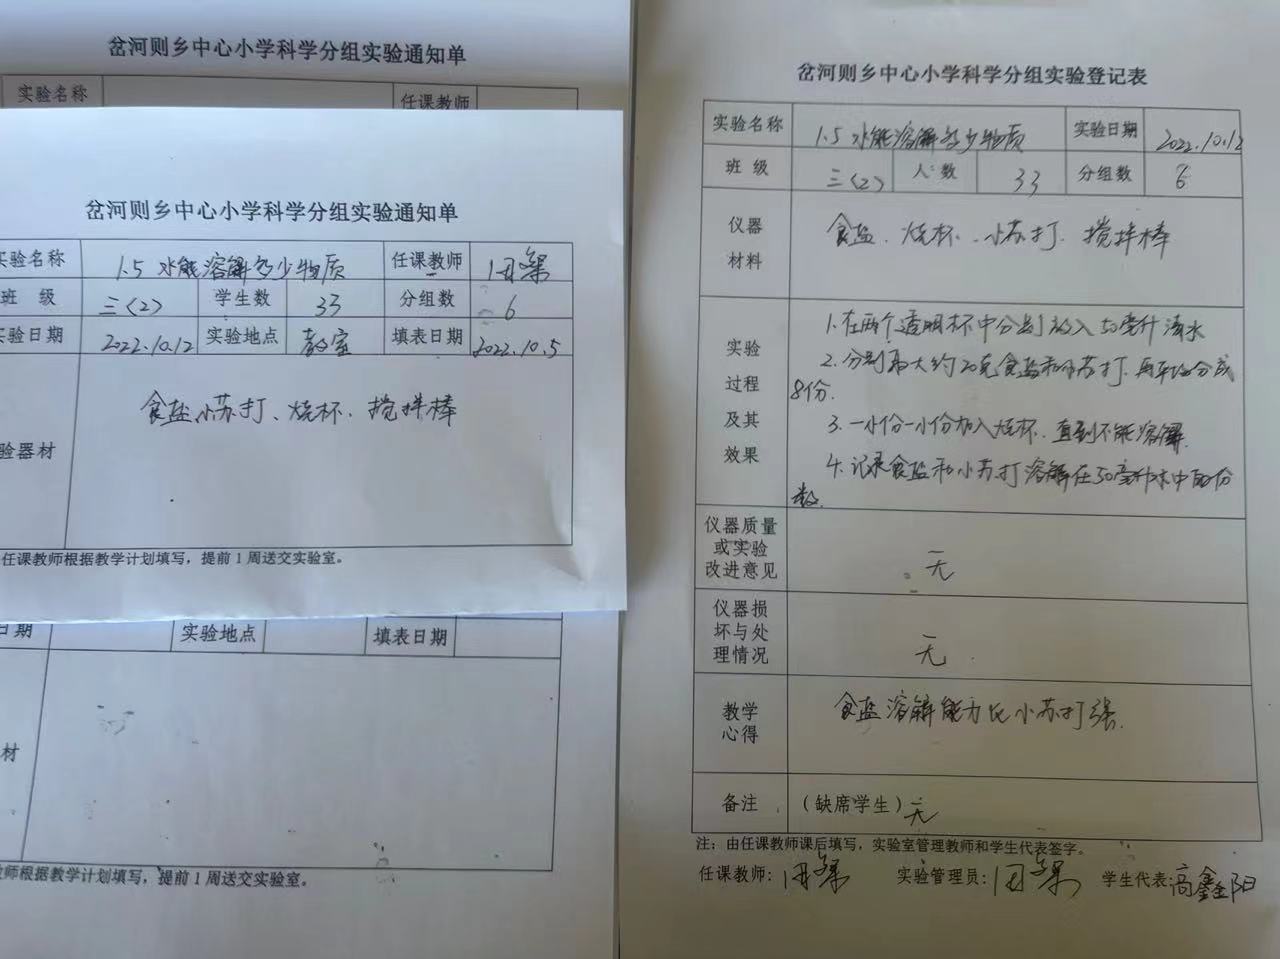 岔河则乡中心小学科学分组实验通知单
实验名称 任课教师
岔河则乡中心小学科学分组实验通知单
实验名称 1.5 水能溶解多少物质 任课教师
班 级 三(2) 学生数 33 分组数 6
实验日期 2022.10.12 实验地点 教室 填表日期 2022.10.5
验器材 食盐、小苏打、烧杯、搅拌棒
任课教师根据教学计划填写，提前1周送交实验室。
日期 实验地点 填表日期
材
教师根据教学计划填写，提前1周送交实验室。
岔河则乡中心小学科学分组实验登记表
实验名称 1.5 水能溶解多少物质 实验日期 2022.10.12
班 级 三(2) 人 数 33 分组数 6
仪器
材料
食盐、烧杯、小苏打、搅拌棒
实验
过程
及其
效果
1.在两个透明杯中分别放入50毫升清水
2.分别取大约20克食盐和小苏打,再平均分成
8份.
3.一小份一小份加入烧杯.直到不能溶解.
4.记录食盐和小苏打溶解在50毫升水中的份
数.
仪器质量
或实验
改进意见
无
仪器损
坏与处
理情况
无
教学
心得
食盐溶解能力比小苏打强.
备注 (缺席学生) 无
注：由任课教师课后填写，实验室管理教师和学生代表签字。
任课教师: 实验管理员: 学生代表:高鑫阳